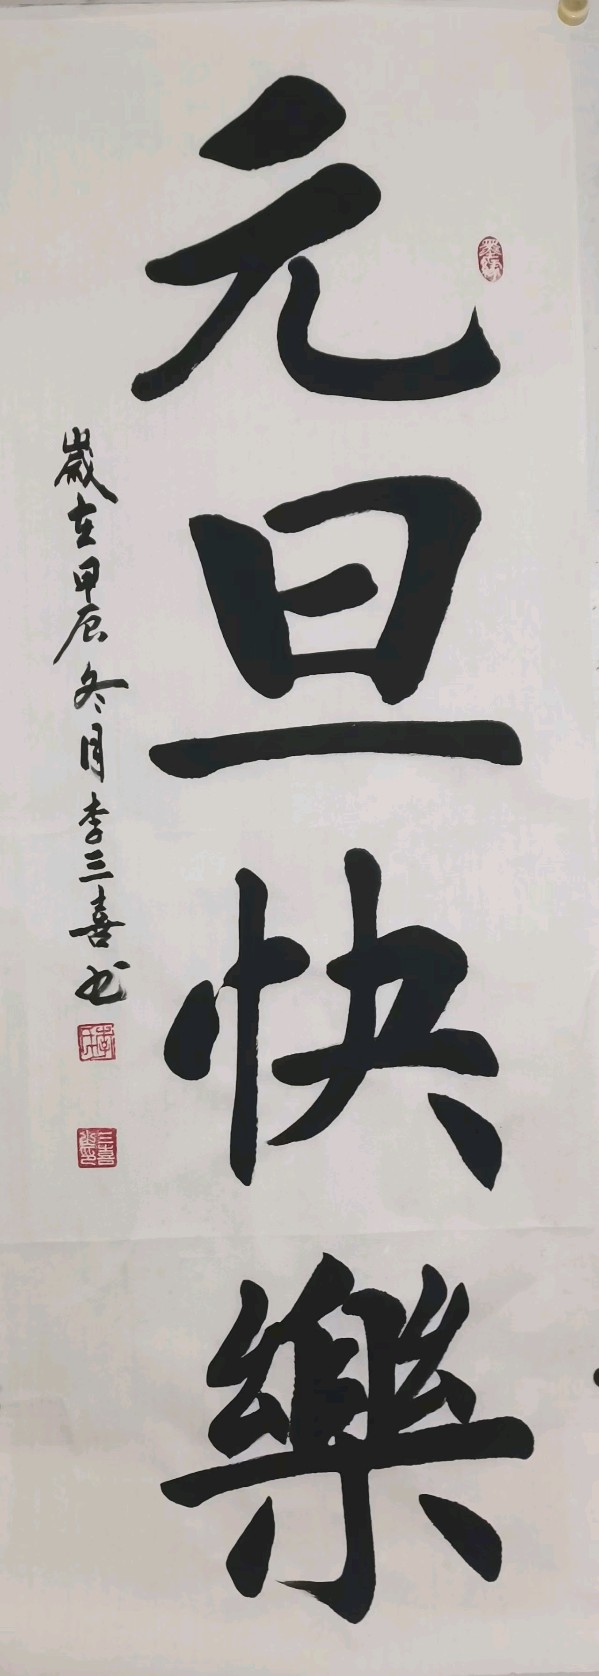 元旦快樂
歲在甲辰冬月李三喜书